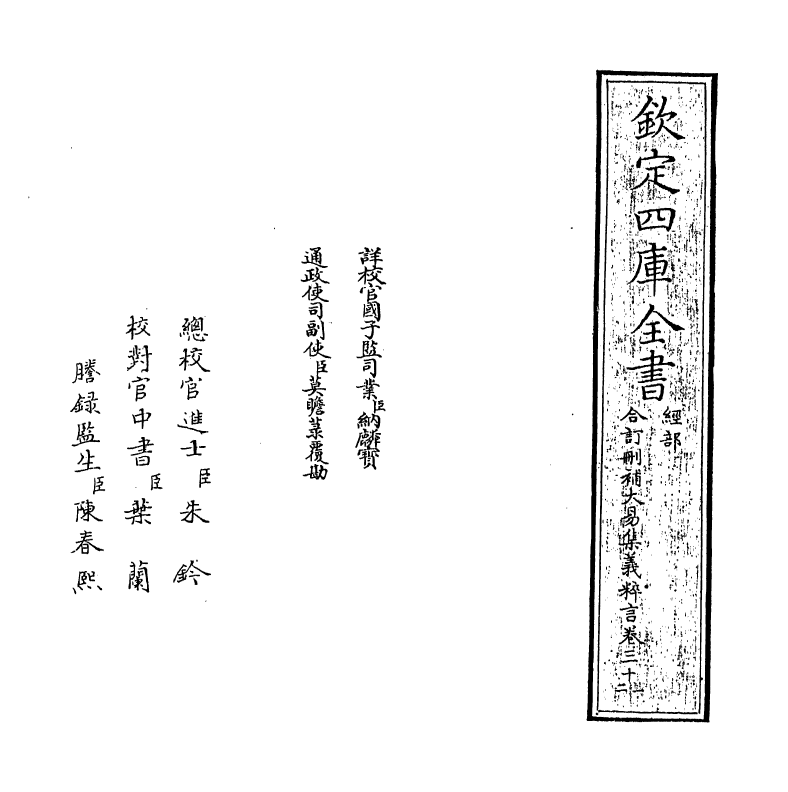 欽定四庫全書
經部
合訂刪補大易集義粹言卷三十一
二
詳校官國子監司業臣納麟寶
通政使司副使臣莫瞻菉覆勘
總校官進士臣朱鈐
校對官中書臣葉蘭
謄錄監生臣陳春熙